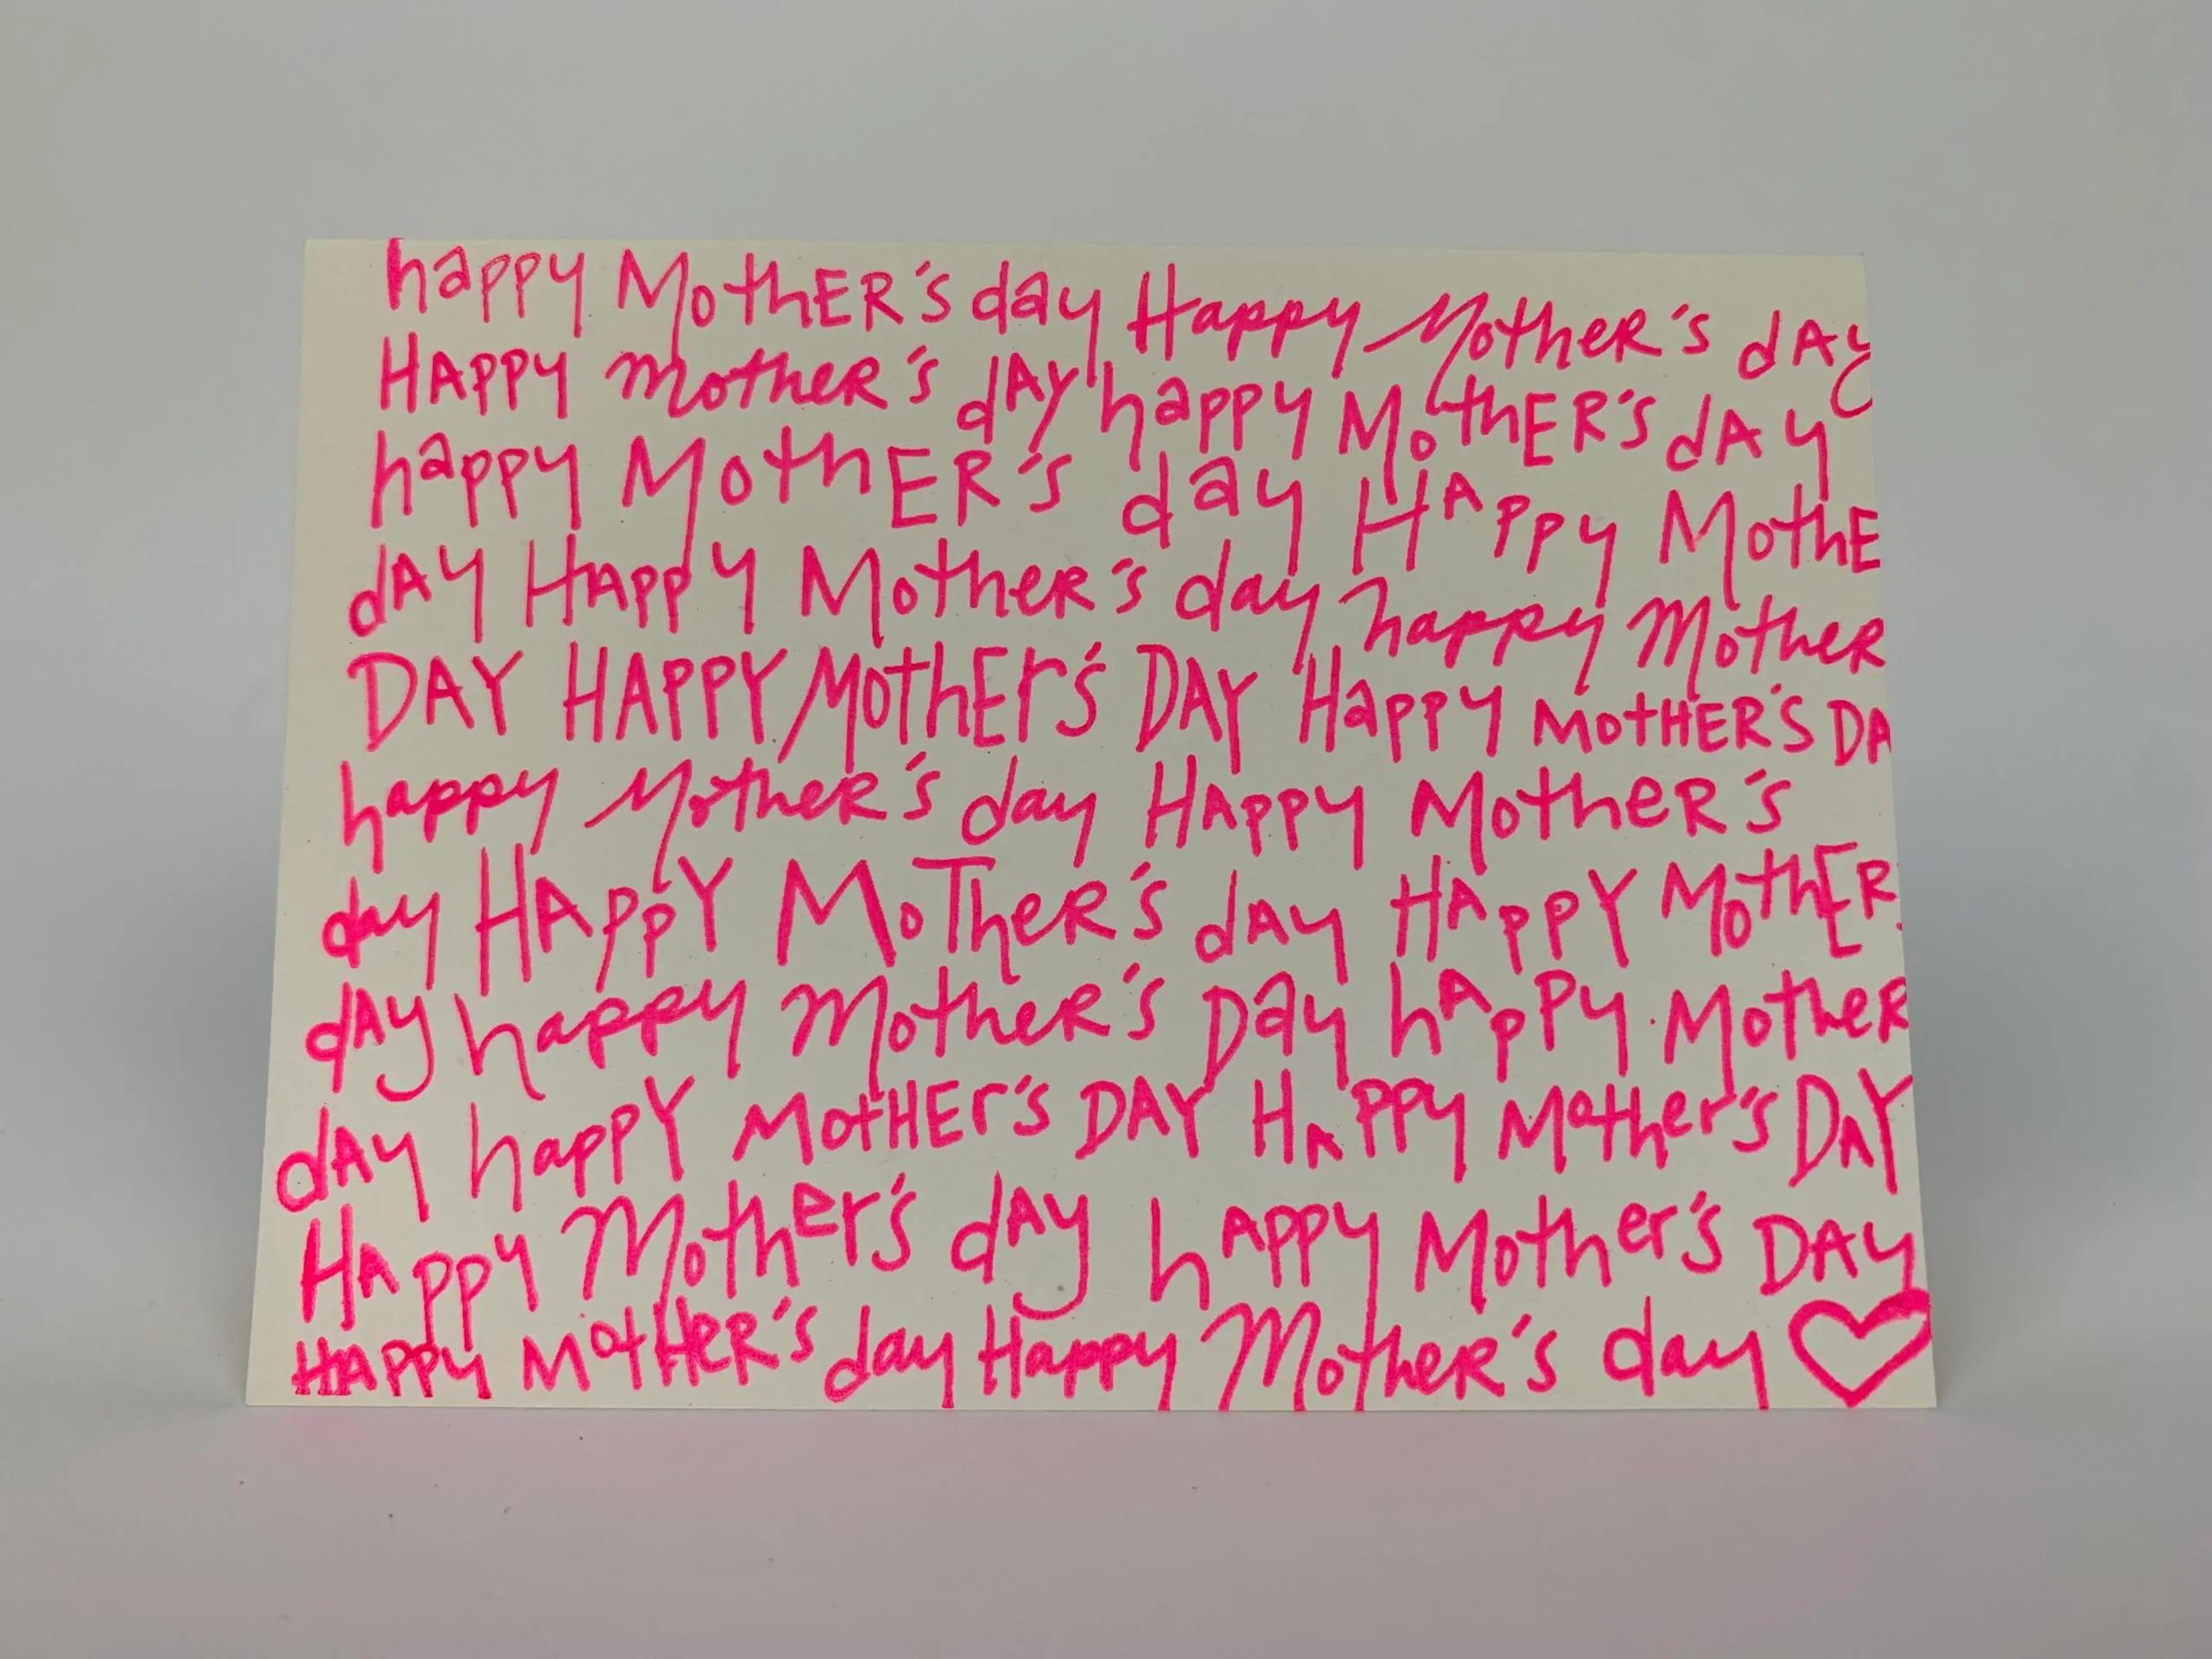 happy MothER's day Happy Mother's dAy
HAPPY mother's dAy happy MothER's dAy
happy MothER's day HAppy MothE
dAy HAppy MotheR's day happy Mother
DAY HAPPY MothEr's DAY Happy MotHER'S DA
happy MotheR's day HAppy MotheR's
day HAppY MoTheR's dAy HAppY MothER
dAy happy MotheR's Day hAppy MotheR
dAy happY MotHEr's DAY HAPPy Mother's DAY
HAppy Mother's dAy hAPPy Mother's DAy
HAPPy MotHeR's day Happy MotheR's day